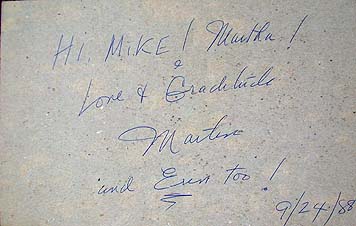 Hi, MIKE! Martha!
&
Love & Graditude
Martin
and Erin too!
9/24/88